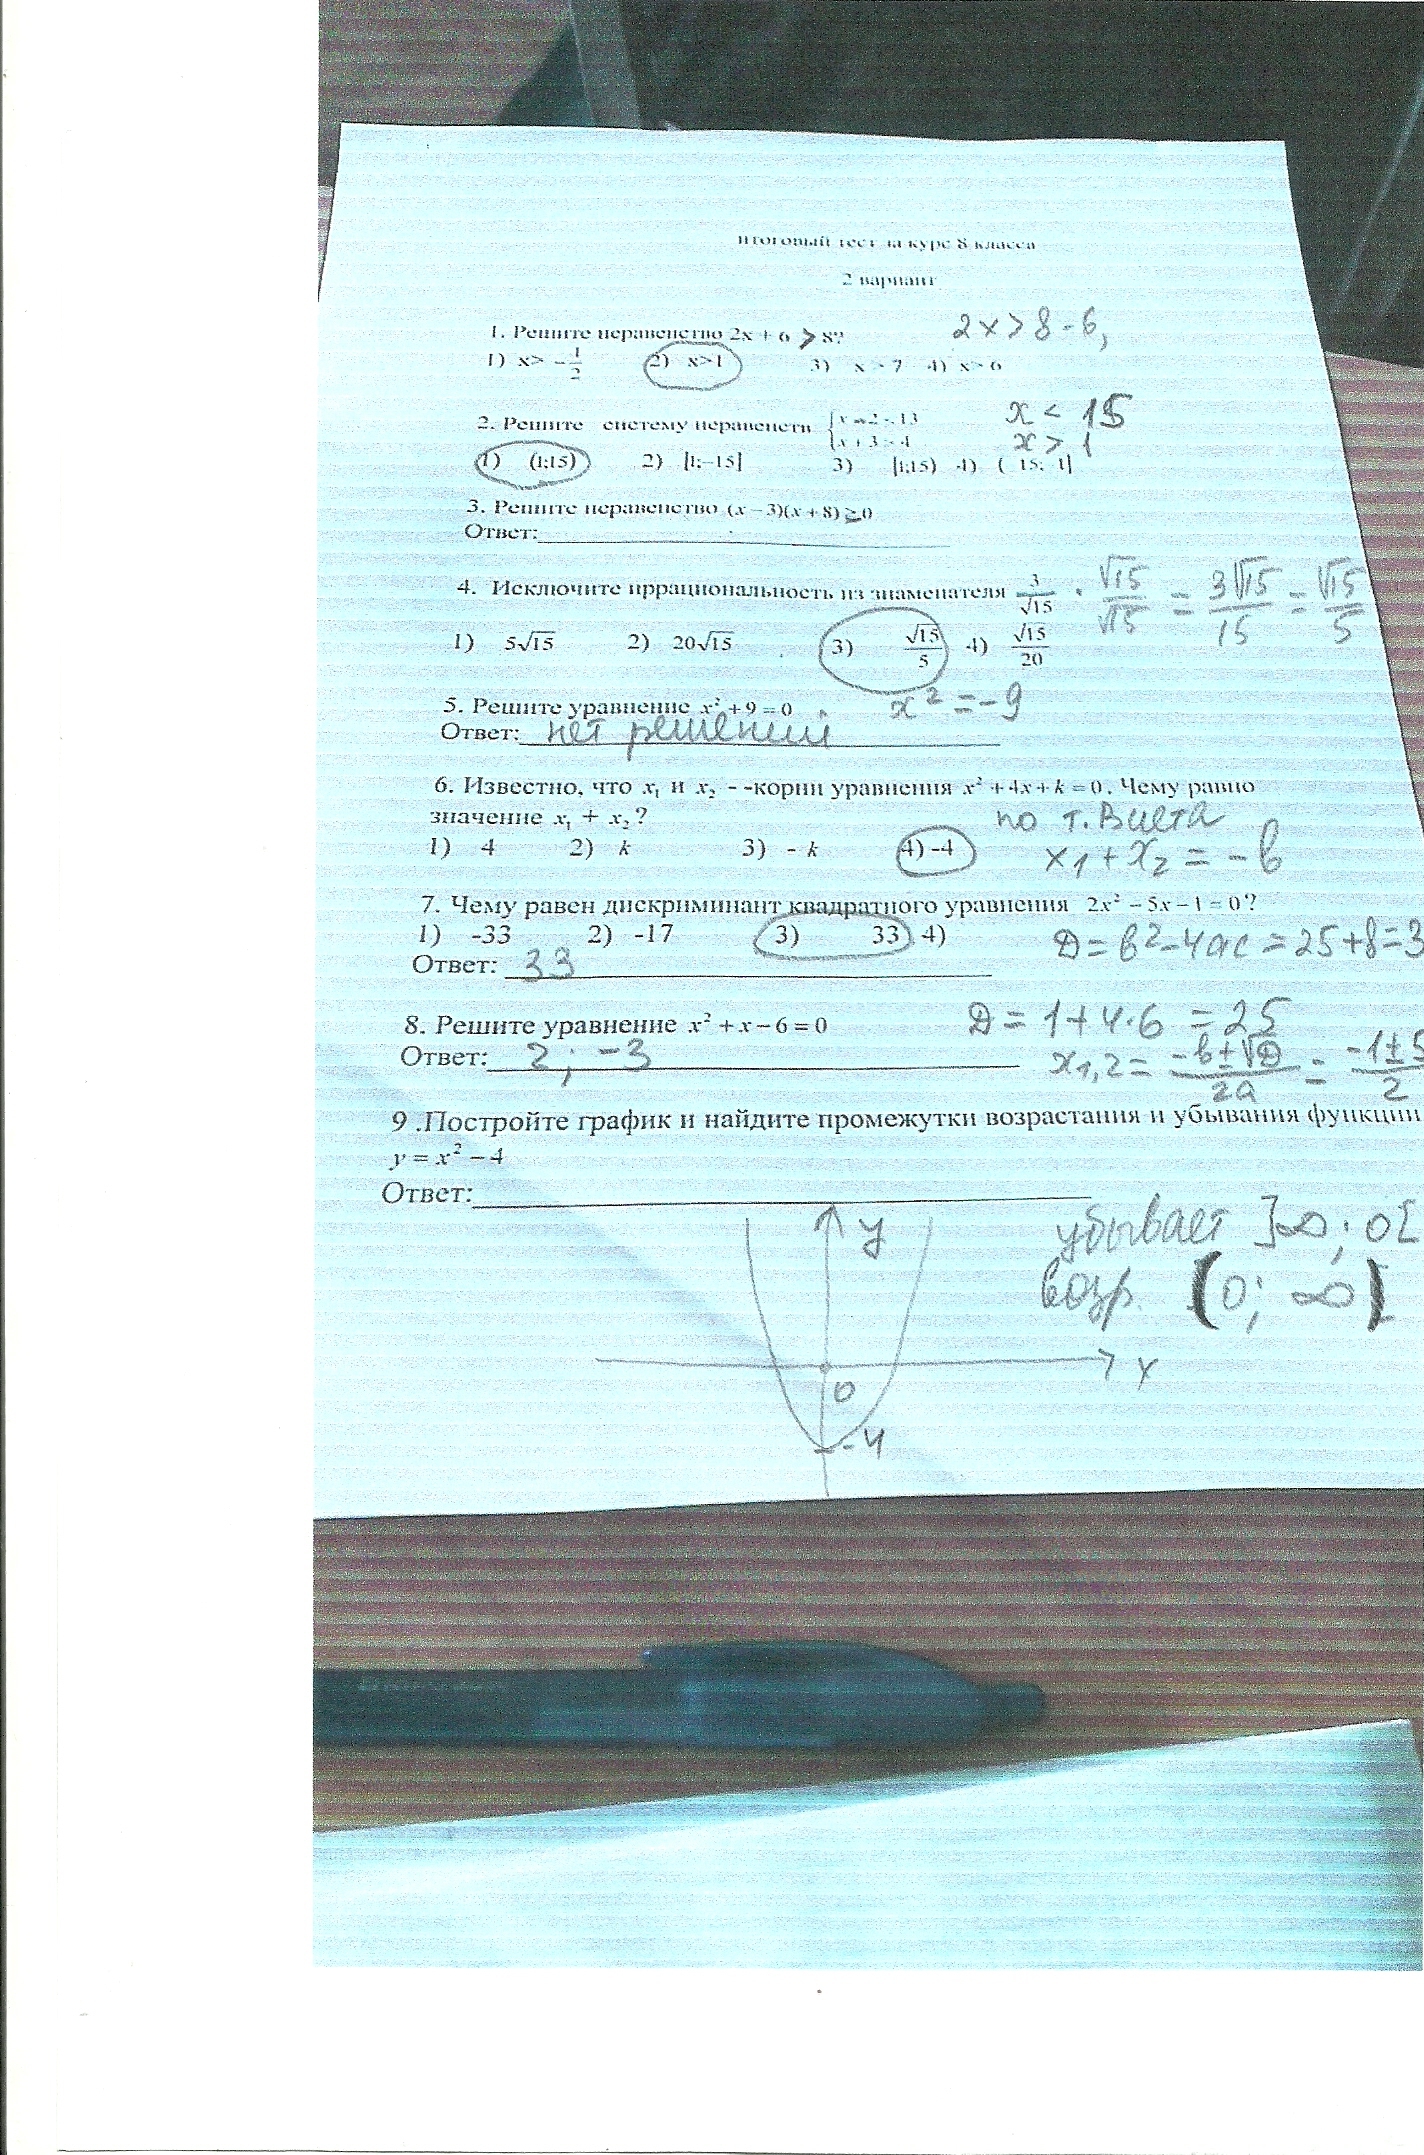 итоговый тест за курс 8 класса
2 вариант
1. Решите неравенство 2x + 6 > 8? 2x > 8 - 6,
1) x> -1/2 2) x>1 3) x > 7 4) x> 6
2. Решите систему неравенств { x - 2 < 13 x < 15
{ x + 3 > 4 x > 1
1) (1;15) 2) [1;-15] 3) [1;15) 4) ( 15; 1]
3. Решите неравенство (x - 3)(x + 8) ≥ 0
Ответ:
4. Исключите иррациональность из знаменателя 3/√15 · √15/√15 = 3√15/15 = √15/5
1) 5√15 2) 20√15 3) √15/5 4) √15/20
5. Решите уравнение x² + 9 = 0 x² = -9
Ответ: нет решений
6. Известно, что x₁ и x₂ - -корни уравнения x² + 4x + k = 0. Чему равно
значение x₁ + x₂? по т. Виета
1) 4 2) k 3) - k 4) -4 x₁ + x₂ = -b
7. Чему равен дискриминант квадратного уравнения 2x² - 5x - 1 = 0?
1) -33 2) -17 3) 33 4) D = b² - 4ac = 25 + 8 = 3
Ответ: 33
8. Решите уравнение x² + x - 6 = 0 D = 1 + 4·6 = 25
Ответ: 2; -3 x₁,₂ = (-b ± √D)/2a = (-1 ± 5)/2
9 .Постройте график и найдите промежутки возрастания и убывания функции
y = x² - 4
Ответ:
y убывает ]∞; 0[
возр. (0; ∞)
x
0
-4